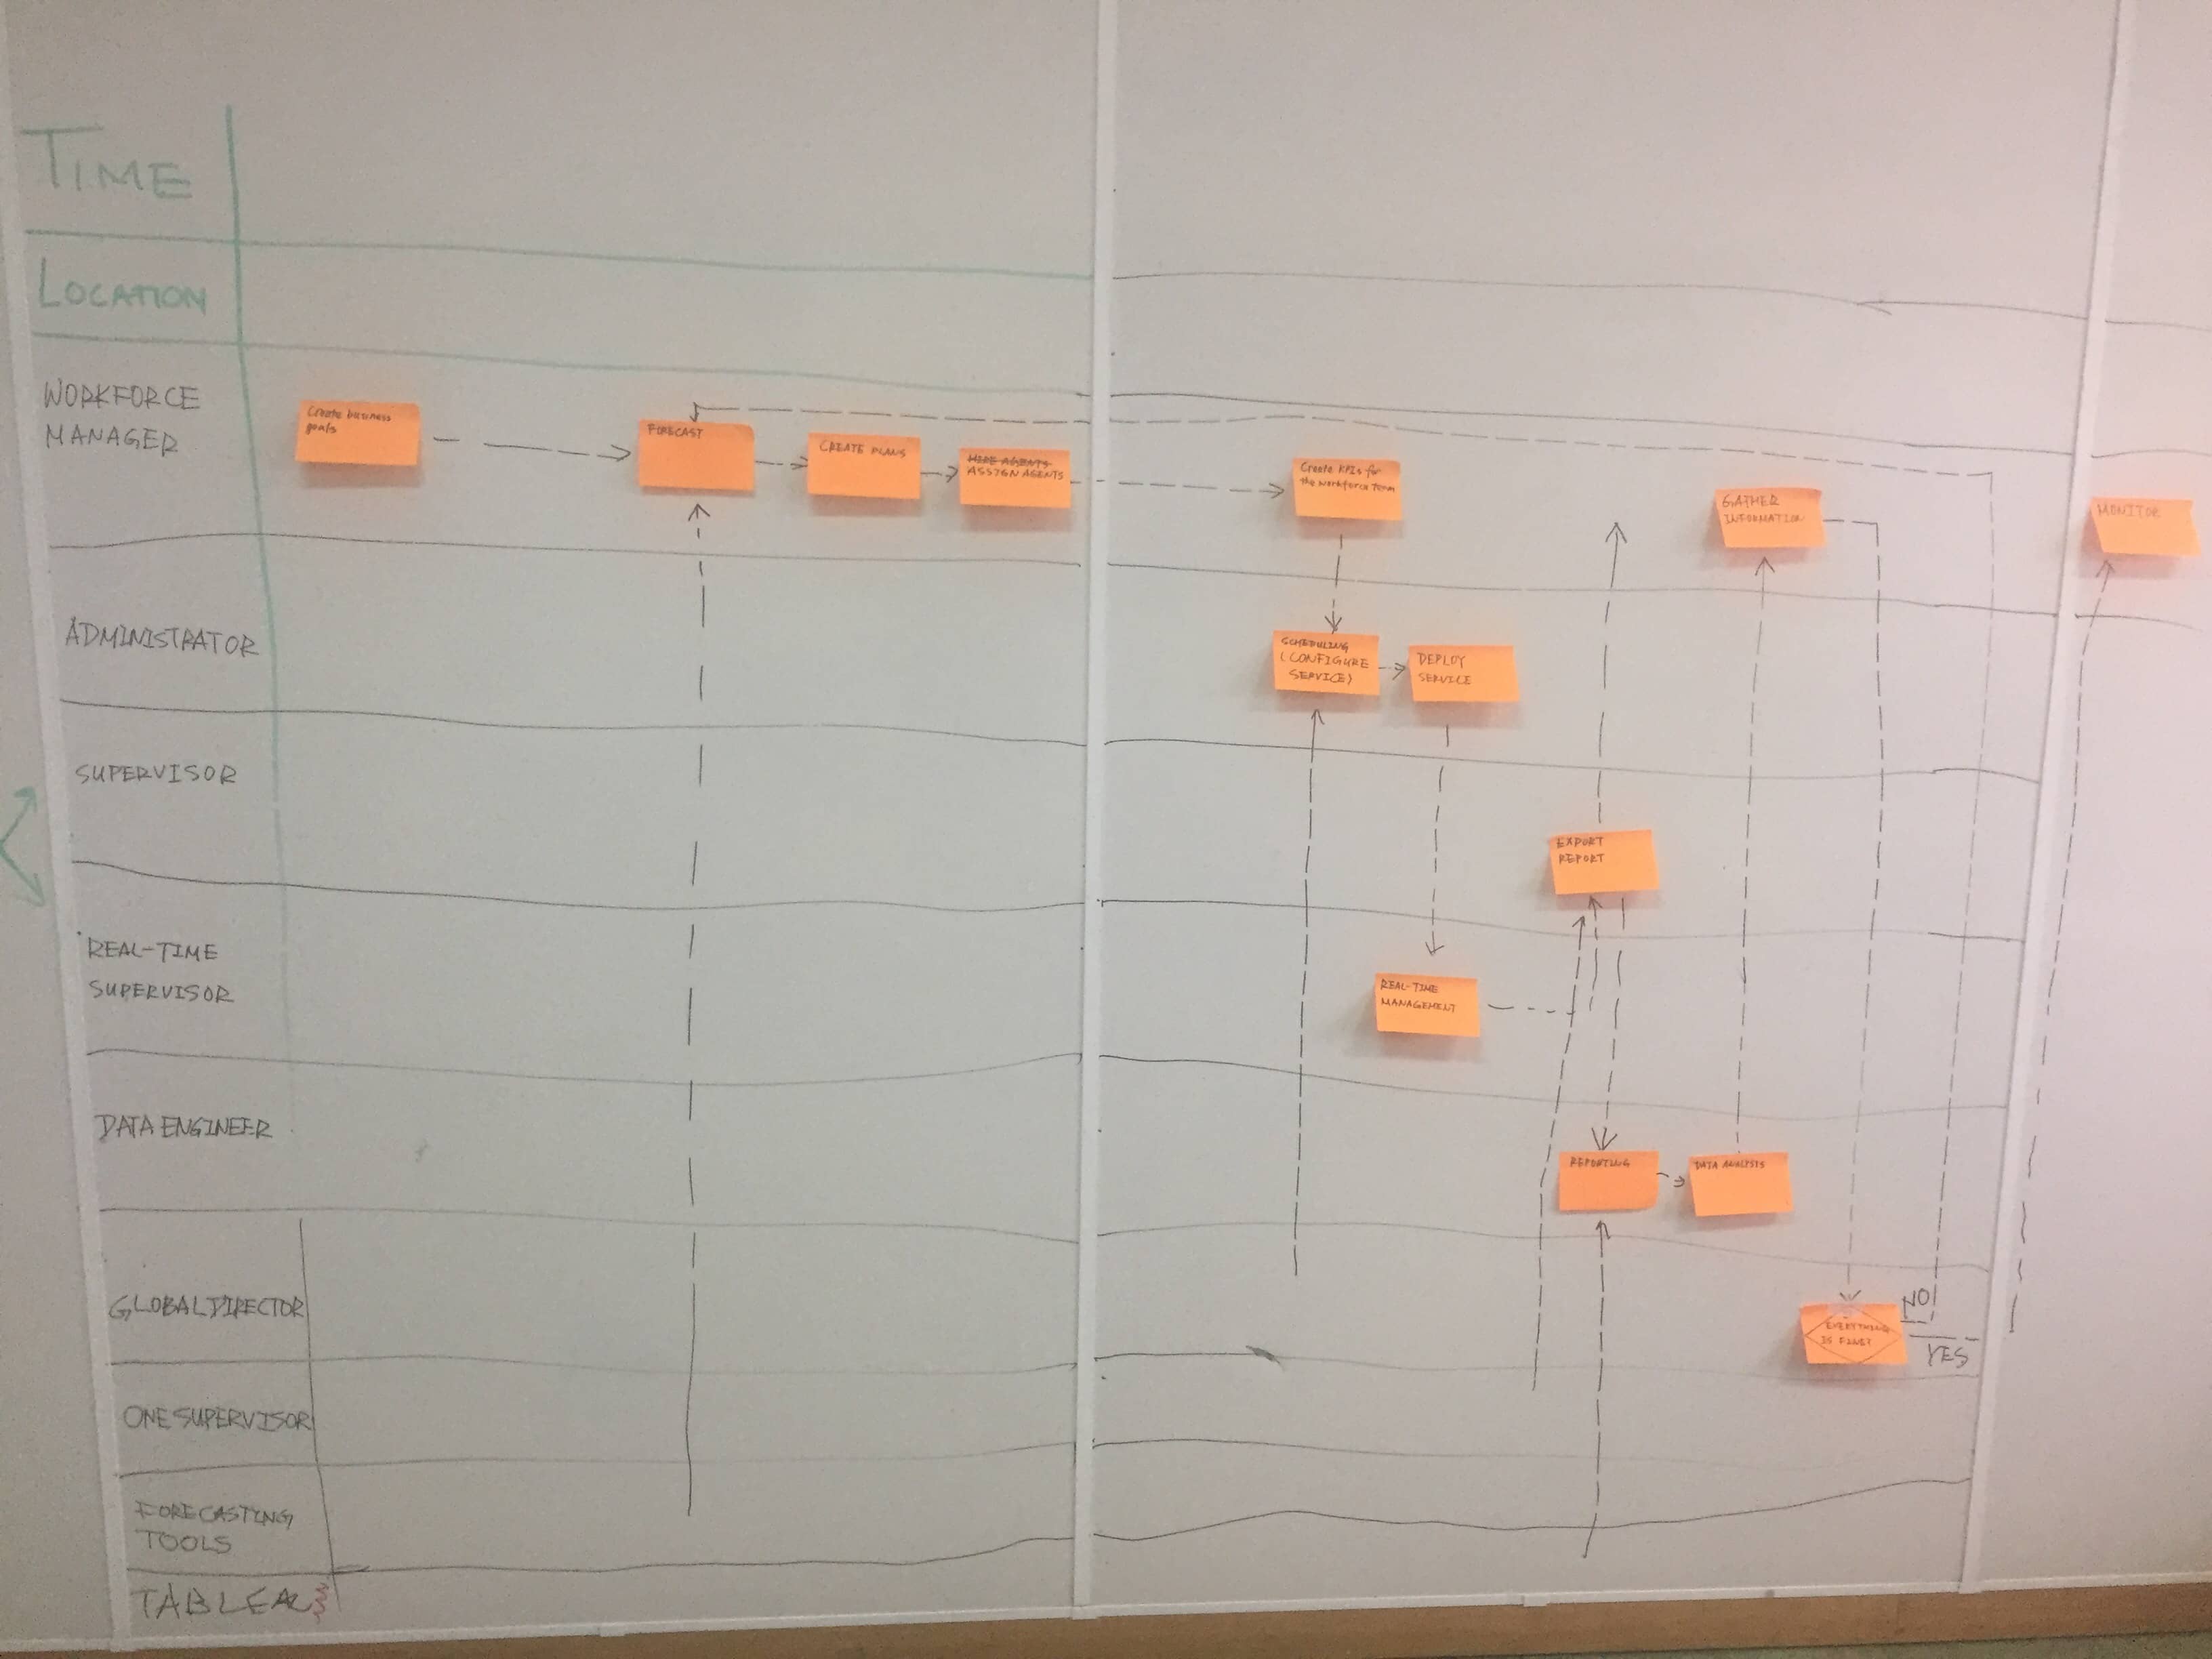 TIME
LOCATION
WORKFORCE
MANAGER
Create business
goals
FORECAST
CREATE PLANS
HIRE AGENTS
ASSIGN AGENTS
Create KPIs for
the workforce team
GATHER
INFORMATION
MONITOR
ADMINISTRATOR
SCHEDULING
(CONFIGURE
SERVICE)
DEPLOY
SERVICE
SUPERVISOR
EXPORT
REPORT
REAL-TIME
SUPERVISOR
REAL-TIME
MANAGEMENT
DATA ENGINEER
REPORTING
DATA ANALYSIS
GLOBAL DIRECTOR
EVERYTHING
IS FINE?
NO
YES
ONE SUPERVISOR
FORECASTING
TOOLS
TABLEAU